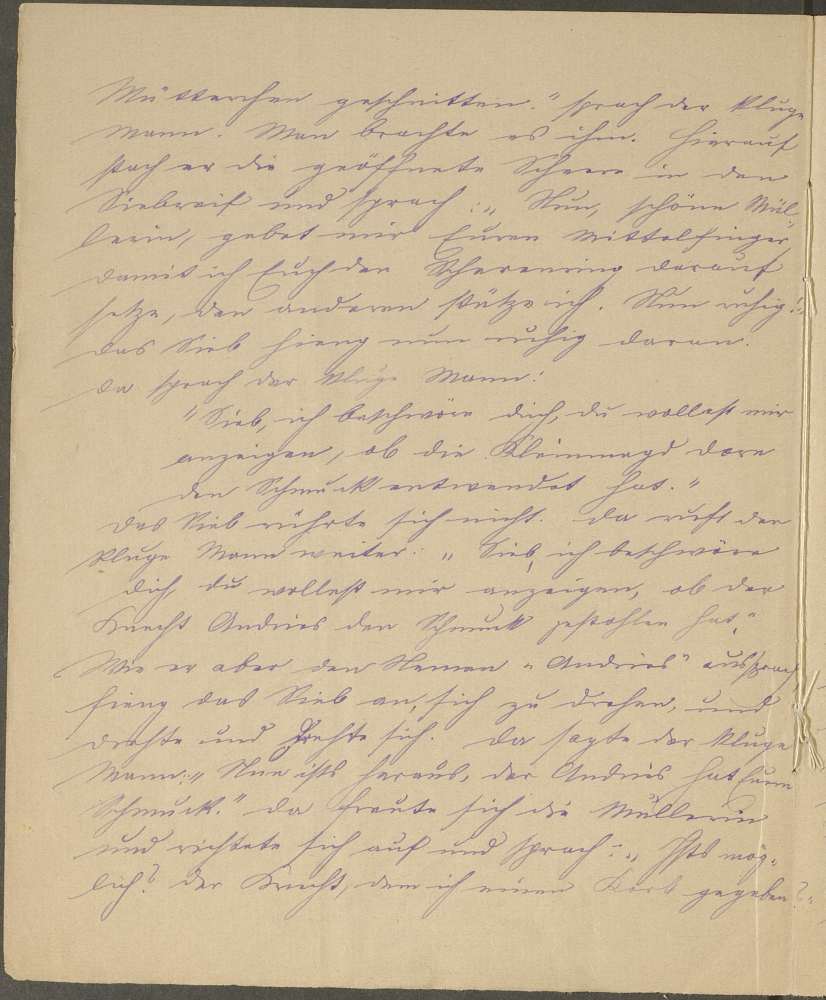 Mütterchen geschnitten." sprach der kluge
Mann. Man brachte es ihm. Hierauf
stach er die geöffnete Scheere in den
Siebreif und sprach: „Nun, schöne Mül-
lerin, gebet mir Euren Mittelfinger,
damit ich Euch den Scherenring darauf
setze, den anderen stütze ich. Nun ruhig!"
Das Sieb hieng nun ruhig daran.
Da sprach der kluge Mann:
"Sieb, ich beschwöre dich, du wollest mir
anzeigen, ob die Kleinmagd Dore
den Schmuck entwendet hat."
Das Sieb rührte sich nicht. Da ruft der
kluge Mann weiter: „Sieb, ich beschwöre
dich, du wollest mir anzeigen, ob der
Knecht Andries den Schmuck gestohlen hat."
Wie er aber den Namen "Andries" aussprach
fieng das Sieb an, sich zu drehen, und
drehte und drehte sich. Da sagte der kluge
Mann: „Nun ists heraus, der Andries hat Euren
Schmuck." Da freute sich die Müllerin
und richtete sich auf und sprach: „Ists mög-
lich? Der Knecht, dem ich einen Korb gegeben?"